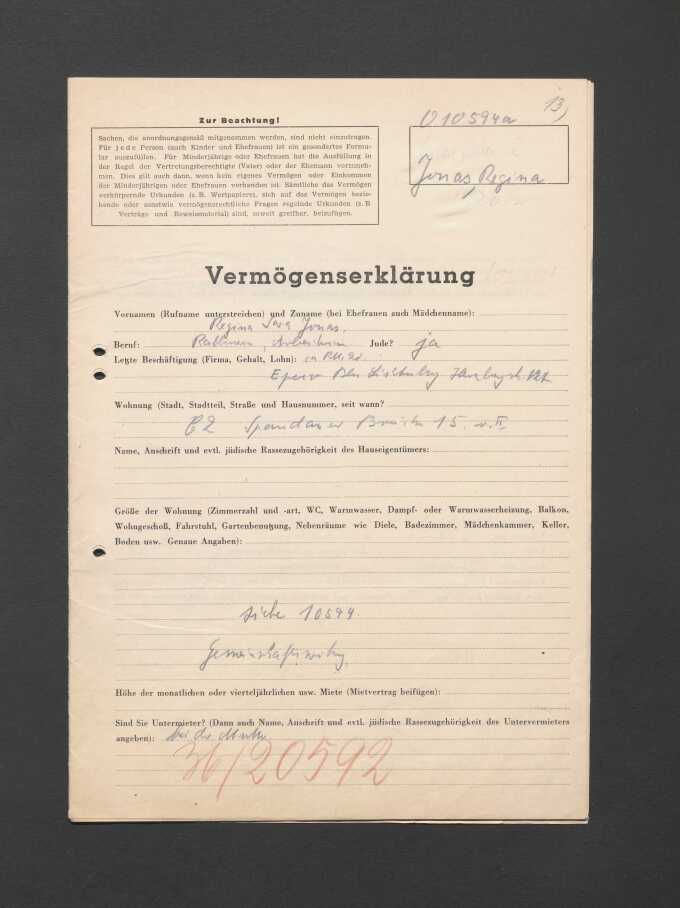 13)
010594a
Zur Beachtung!
Sachen, die anordnungsgemäß mitgenommen werden, sind nicht einzutragen.
Für jede Person (auch Kinder und Ehefrauen) ist ein gesondertes Formu-
lar auszufüllen. Für Minderjährige oder Ehefrauen hat die Ausfüllung in
der Regel der Vertretungsberechtigte (Vater) oder der Ehemann vorzuneh-
men. Dies gilt auch dann, wenn kein eigenes Vermögen oder Einkommen
der Minderjährigen oder Ehefrauen vorhanden ist. Sämtliche das Vermögen
verkörpernde Urkunden (z. B. Wertpapiere), sich auf das Vermögen bezie-
hende oder sonstwie vermögensrechtliche Fragen regelnde Urkunden (z. B
Verträge und Beweismaterial) sind, soweit greifbar, beizufügen.
Jonas, Regina
Vermögenserklärung
Vornamen (Rufname unterstreichen) und Zuname (bei Ehefrauen auch Mädchenname):
Regina Sara Jonas.
Beruf: Rabbinerin, Arbeiterin Jude? ja
Letzte Beschäftigung (Firma, Gehalt, Lohn):
Wohnung (Stadt, Stadtteil, Straße und Hausnummer, seit wann?
C2 15. v. II
Name, Anschrift und evtl. jüdische Rassezugehörigkeit des Hauseigentümers:
Größe der Wohnung (Zimmerzahl und -art, WC, Warmwasser, Dampf- oder Warmwasserheizung, Balkon,
Wohngeschoß, Fahrstuhl, Gartenbenutzung, Nebenräume wie Diele, Badezimmer, Mädchenkammer, Keller,
Boden usw. Genaue Angaben):
siehe 10594.
Höhe der monatlichen oder vierteljährlichen usw. Miete (Mietvertrag beifügen):
Sind Sie Untermieter? (Dann auch Name, Anschrift und evtl. jüdische Rassezugehörigkeit des Untervermieters
angeben): bei der Mutter
36/20592